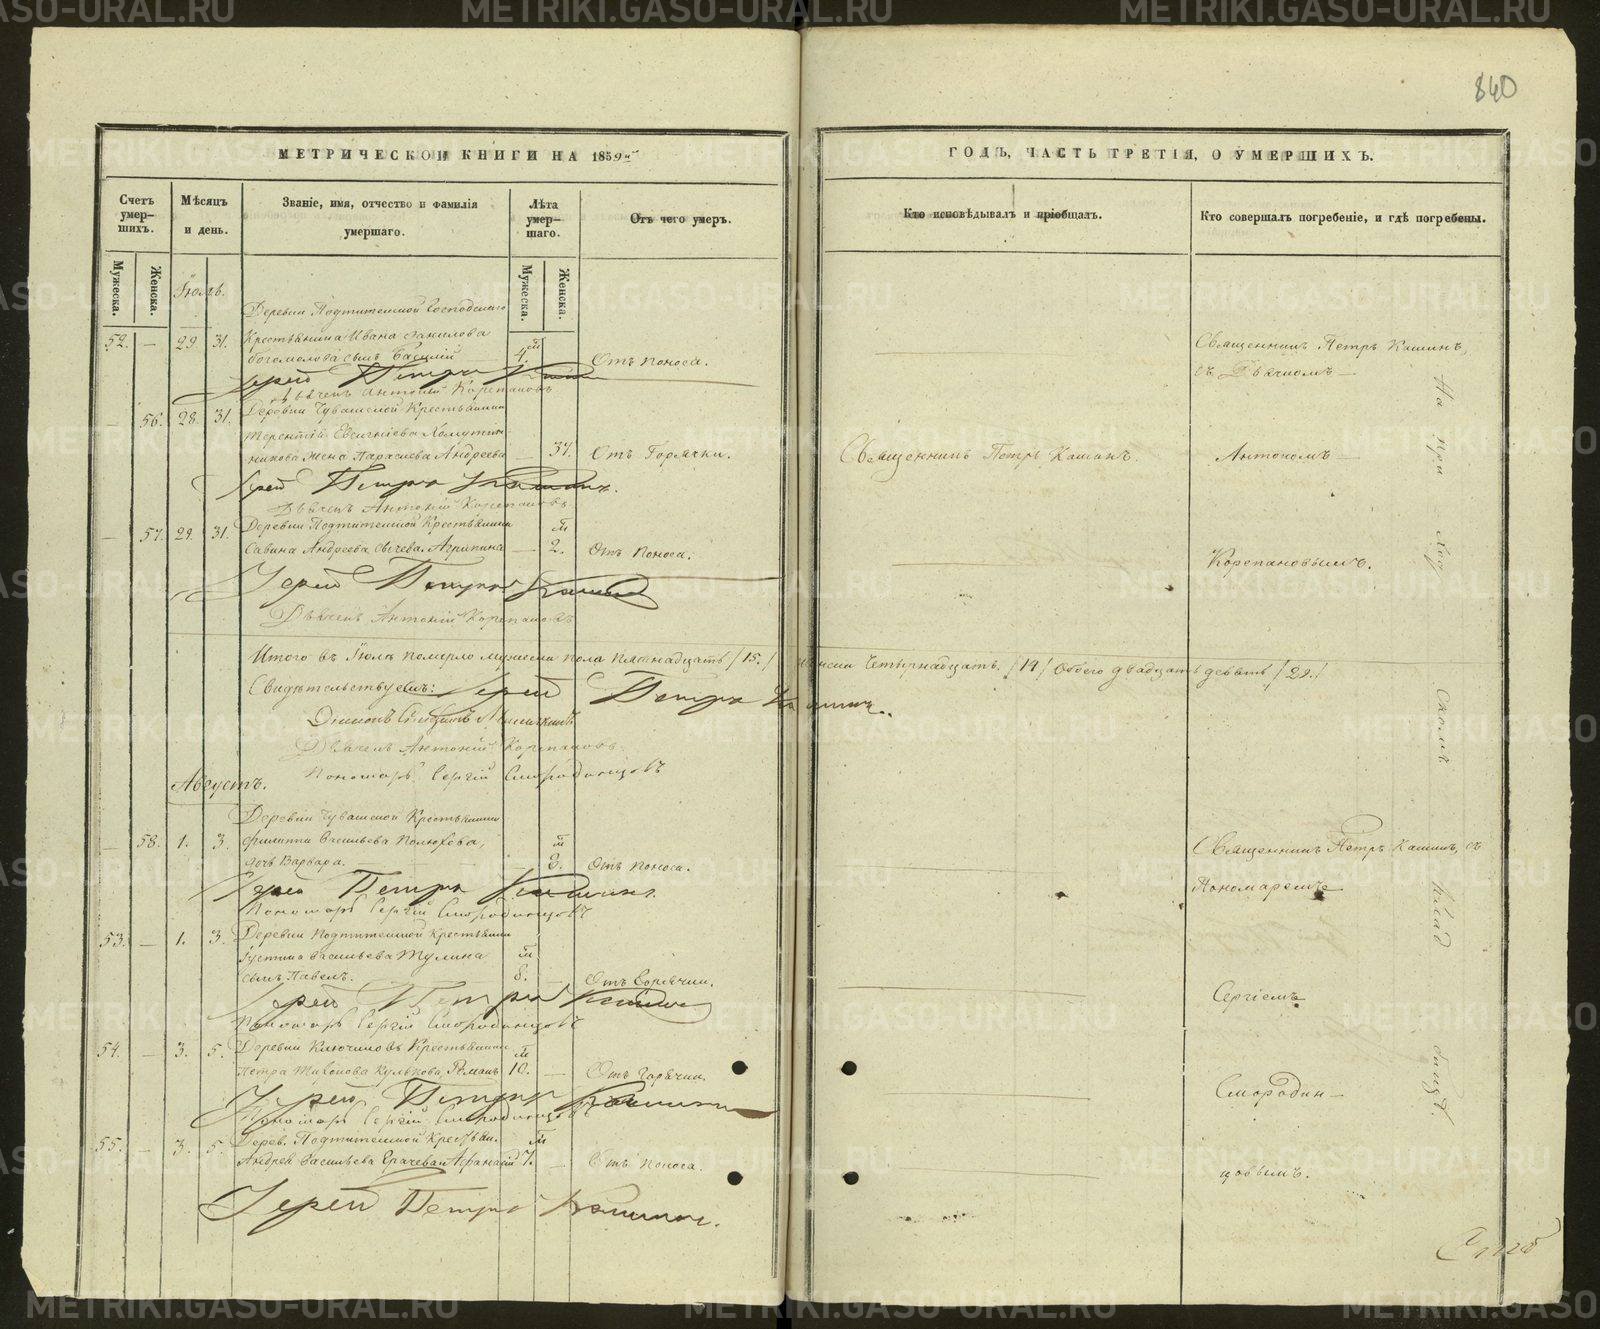 840
МЕТРИЧЕСКОЙ КНИГИ НА 1859й
ГОДЪ, ЧАСТЬ ТРЕТІЯ, О УМЕРШИХЪ.
Счетъ умер-шихъ.
Мѣсяцъ и день.
Званіе, имя, отчество и фамилія умершаго.
Лѣта умер-шаго.
Отъ чего умер.
Кто исповѣдывалъ и пріобщалъ.
Кто совершалъ погребеніе, и гдѣ погребены.
Мужеска.
Женска.
Мужеска.
Женска.
Іюль.
Деревни Подтитешной Господскаго
52. — 29. 31. Крестьянина Ивана Данилова
Богомолова сынъ Василій 4. м Отъ поноса.
Священникъ Петръ Кашинъ,
съ Дьячкомъ —
Іерей Петръ Кашинъ
Дьячекъ Антоній Корепановъ
— 56. 28. 31. Деревни Чувашской Крестьянина
Терентій Евгеніева
жена Парасковья Андреева — 37. Отъ Горячки.
Священникъ Петръ Кашинъ.
Антономъ —
Іерей Петръ Кашинъ.
Дьячекъ Антоній Корепановъ
— 57. 29. 31. Деревни Подтитешной Крестьянина
Савина Андреева Сычева Агрипина — 2. м Отъ поноса.
Корепановымъ.
Іерей Петръ Кашинъ
Дьячекъ Антоній Корепановъ
Итого въ Іюлѣ померло мужеска пола пятнадцать /15./ женска четырнадцать /14/ Обоего двадцать девять /29./
Свидѣтельствуемъ: Іерей Петръ Кашинъ.
Діаконъ
Дьячекъ Антоній Корепановъ
Пономарь Сергій Смородинцовъ
Августъ.
Деревни Чувашской Крестьянина
— 58. 1. 3. Филиппа Васильева
дочь Варвара. — 3. м Отъ поноса.
Священникъ Петръ Кашинъ, съ
Пономаремъ
Іерей Петръ Кашинъ.
Пономарь Сергій Смородинцовъ
53. — 1. 3. Деревни Подтитешной Крестьянина
Густина Васильева Тулина
сынъ Павелъ. м 8. — Отъ Горячки.
Сергіемъ
Іерей Петръ Кашинъ
Пономарь Сергій Смородинцовъ
54. — 3. 5. Деревни Ключиковъ Крестьянина м
Петра Тихонова Кулькова, Романъ 10. — Отъ Горячки.
Смородин—
Іерей Петръ Кашинъ
Пономарь Сергій Смородинцовъ
55. — 3. 5. Дерев. Подтитешной Крестьян. м
Андрея Васильева Грачева Афанасій 7. — Отъ Поноса.
цовымъ.
Іерей Петръ Кашинъ.
На
при
ход
скомъ
клад
бищѣ.
METRIKI.GASO-URAL.RU